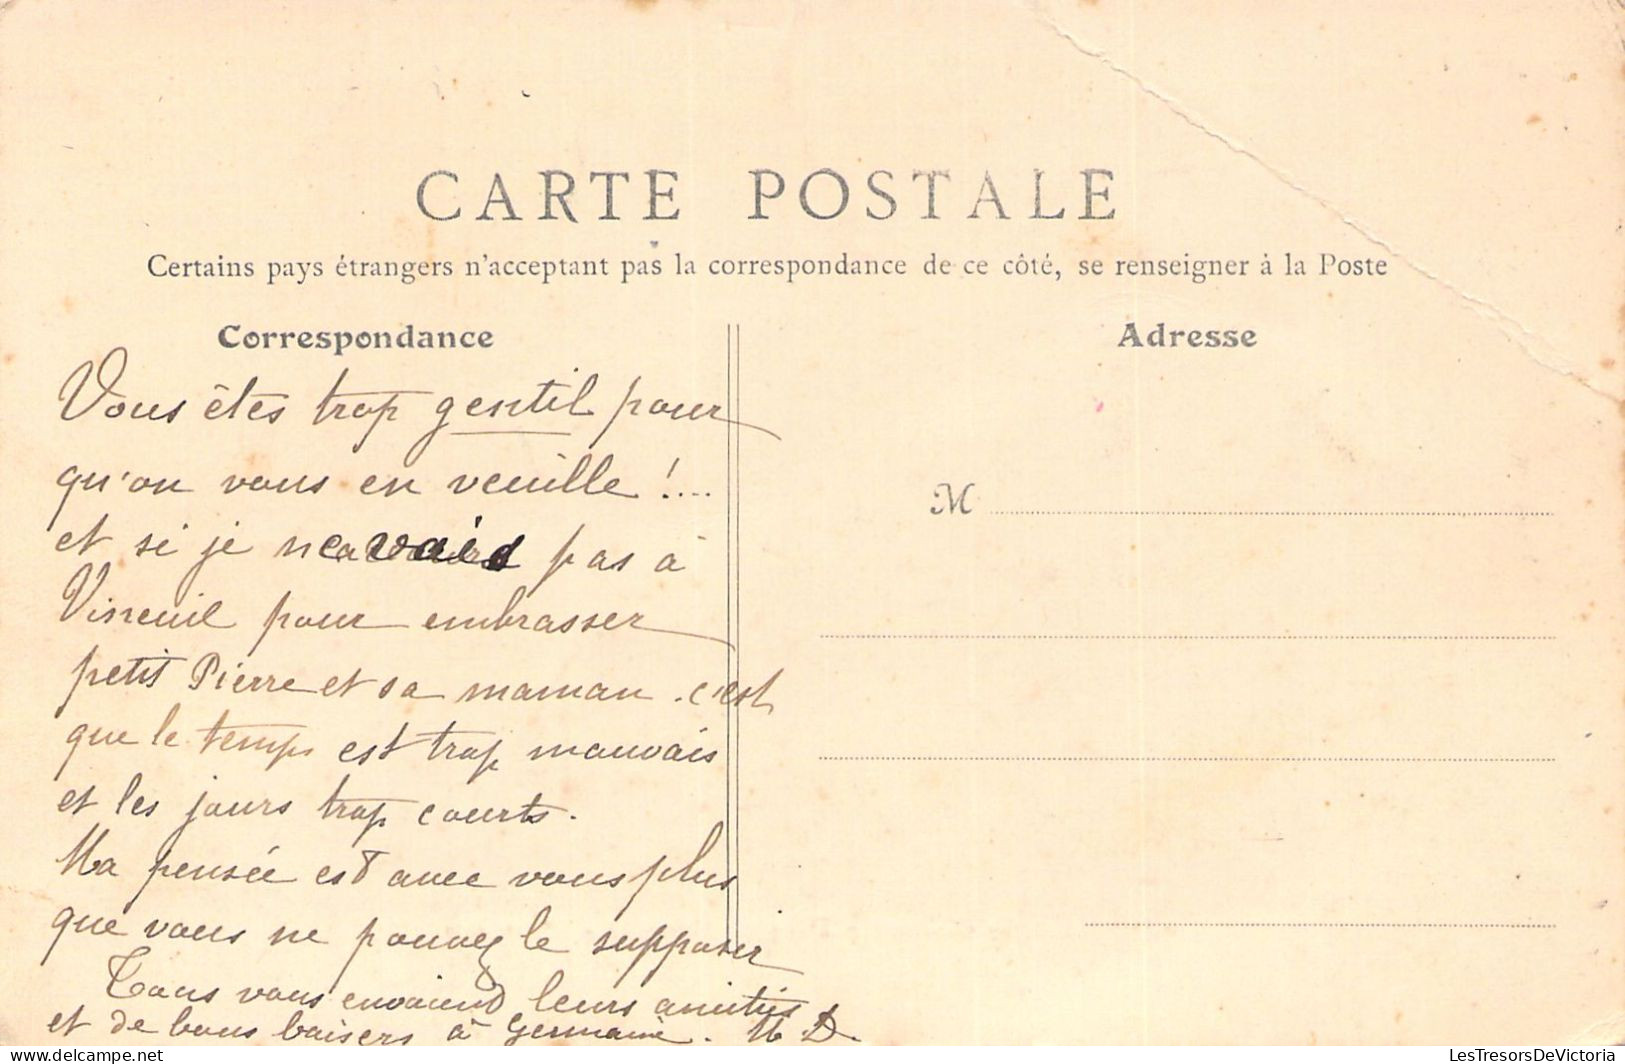 CARTE POSTALE
Certains pays étrangers n'acceptant pas la correspondance de ce côté, se renseigner à la Poste
Correspondance
Adresse
Vous êtes trop gentil pour
qu'on vous en veuille !....
et si je vais pas à
Vineuil pour embrasser
petit Pierre et sa maman. c'est
que le temps est trop mauvais
et les jours trop courts.
Ma pensée est avec vous plus
que vous ne pouvez le supposer
Tous vous envoient leurs amitiés
et de bons baisers à Germaine. M D.
M
LesTresorsDeVictoria
delcampe.net